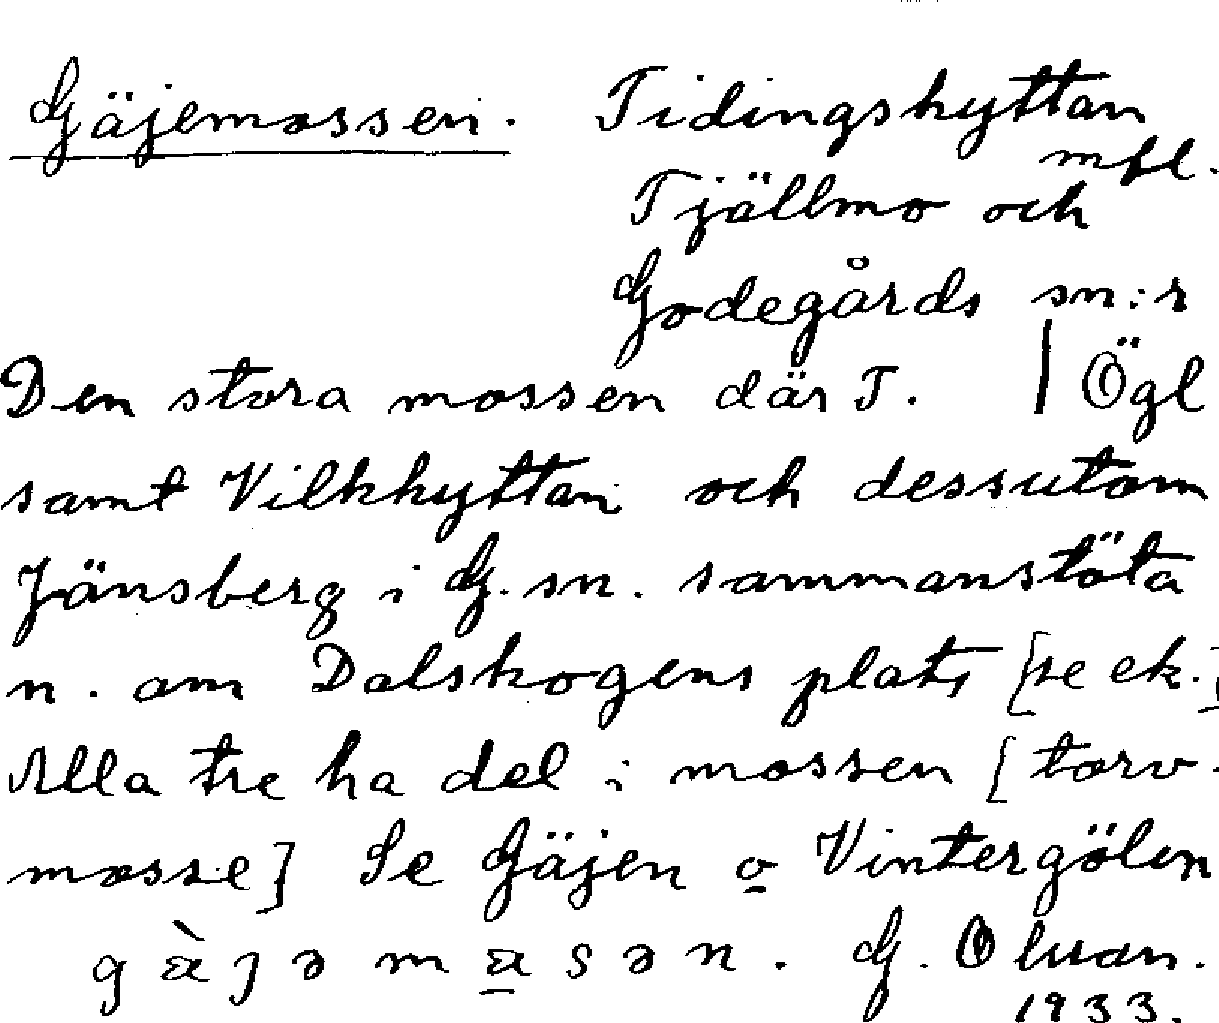 Gäjemossen. Tidingshyttan
mfl.
Tjällmo och
Godegårds sn:r
Den stora mossen där T. | Ögl
samt Vilkhyttan och dessutom
Jänsberg i G. sn. sammanstöta
n. om Dalskogens plats [se ek.]
Alla tre ha del i mossen [torv-
mosse] Se Gäjen o Vintergölen
G.
1933.